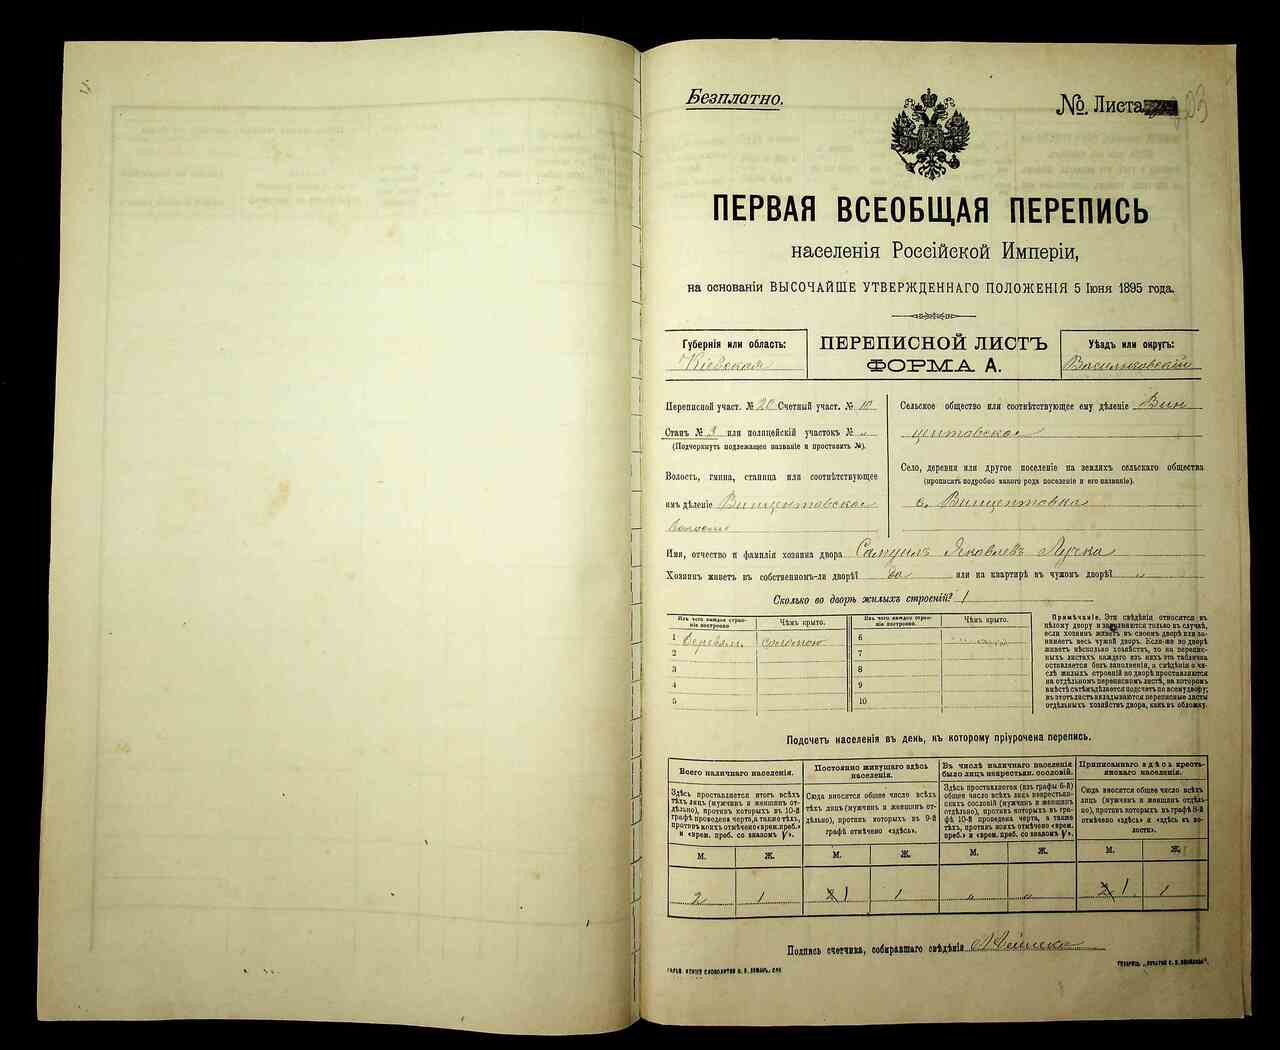 Безплатно.
№. Листа
ПЕРВАЯ ВСЕОБЩАЯ ПЕРЕПИСЬ
населенія Россійской Имперіи,
на основаніи ВЫСОЧАЙШЕ УТВЕРЖДЕННАГО ПОЛОЖЕНІЯ 5 Іюня 1895 года.
Губернія или область:
Кіевская
ПЕРЕПИСНОЙ ЛИСТЪ
ФОРМА А.
Уѣздъ или округъ:
Васильковскій
Переписной участ. № 20 Счетный участ. № 10
Станъ № 3 или полицейскій участокъ № „
(Подчеркнуть подлежащее названіе и проставить №).
Волость, гмина, станица или соотвѣтствующее
имъ дѣленіе Винцентовская
волость
Сельское общество или соотвѣтствующее ему дѣленіе Вин
центовское
Село, деревня или другое поселеніе на земляхъ сельскаго общества
(прописать подробно какого рода поселеніе и его названіе).
с. Винцентовка
Имя, отчество и фамилія хозяина двора Самуилъ Яковлевъ Лучка
Хозяинъ живетъ въ собственномъ-ли дворѣ? да или на квартирѣ въ чужомъ дворѣ? „
Сколько во дворѣ жилыхъ строеній? 1
Изъ чего каждое строе-
ніе построено
Чѣмъ крыто.
1 деревян. соломою
2
3
4
5
Изъ чего каждое строе-
ніе построено.
Чѣмъ крыто.
6
7
8
9
10
Примѣчаніе. Эти свѣдѣнія относятся къ
цѣлому двору и записываются только въ случаѣ,
если хозяинъ живетъ въ своемъ дворѣ или за-
нимаетъ весь чужой дворъ. Если-же во дворѣ
живетъ нѣсколько хозяйствъ, то на переписн-
ыхъ листахъ каждаго изъ нихъ эта табличка
оставляется безъ заполненія, а свѣдѣнія о чи-
слѣ жилыхъ строеній во дворѣ проставляются
на отдѣльномъ переписномъ листѣ, на которомъ
вмѣстѣ съ тѣмъ дѣлается подсчетъ по всему двору;
въ этотъ листъ вкладываются переписные листы
отдѣльныхъ хозяйствъ двора, какъ въ обложку.
Подсчетъ населенія въ день, къ которому пріурочена перепись.
Всего наличнаго населенія.
Здѣсь проставляется итогъ всѣхъ
тѣхъ лицъ (мужчинъ и женщинъ от-
дѣльно), противъ которыхъ въ 10-й
графѣ проведена черта, а также тѣхъ,
противъ коихъ отмѣчено «врем. преб.»
и «врем. преб. со знакомъ V».
М. Ж.
2 1
Постоянно живущаго здѣсь
населенія.
Сюда вносится общее число всѣхъ
тѣхъ лицъ (мужчинъ и женщинъ от-
дѣльно), противъ которыхъ въ 9-й
графѣ отмѣчено «здѣсь».
М. Ж.
2 1 1
Въ числѣ наличнаго населенія
было лицъ некрестьян. сословій.
Здѣсь проставляется (изъ графы 6-й)
общее число всѣхъ лицъ некрестьян-
скихъ сословій (мужчинъ и женщинъ
отдѣльно), противъ которыхъ въ гра-
фѣ 10-й проведена черта, а также
тѣхъ, противъ коихъ отмѣчено «врем.
преб.» и «врем. преб. со знакомъ V».
М. Ж.
„ „
Приписаннаго здѣсь кресть-
янскаго населенія.
Сюда вносится общее число всѣхъ
лицъ (мужчинъ и женщинъ отдѣль-
но), противъ которыхъ въ графѣ 8-й
отмѣчено «здѣсь» и «здѣсь къ во-
лости».
М. Ж.
2 1 1
Подпись счетчика, собиравшаго свѣдѣнія